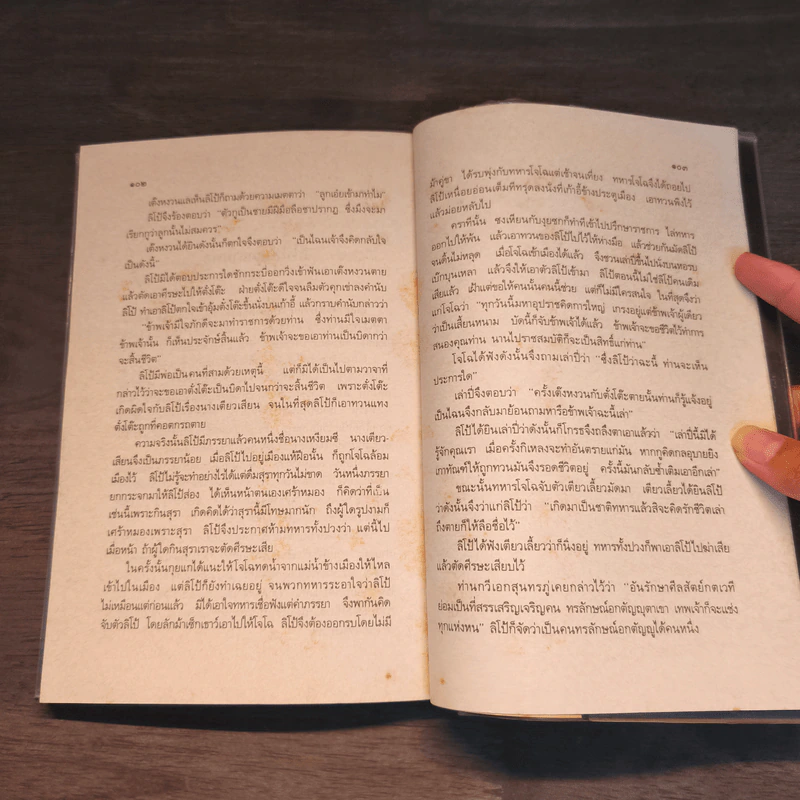 ๑๐๒
เต๊งหงวนแลเห็นลิโป้ก็ถามด้วยความเมตตาว่า "ลูกเอ๋ยเข้ามาทำไม"
ลิโป้จึงร้องตอบว่า "ตัวกูเป็นชายมีฝีมือลือชาปรากฏ ซึ่งมึงจะมา
เรียกกูว่าลูกนั้นไม่สมควร"
เต๊งหงวนได้ยินดังนั้นก็ตกใจจึงตอบว่า "เป็นไฉนเจ้าจึงคิดกลับใจ
เป็นดังนี้"
ลิโป้มิได้ตอบประการใดชักกระบี่ออกวิ่งเข้าฟันเอาเต๊งหงวนตาย
แล้วตัดเอาศีรษะไปให้ตั๋งโต๊ะ ฝ่ายตั๋งโต๊ะดีใจจนลืมตัวคุกเข่าลงคำนับ
ลิโป้ ทำเอาลิโป้ตกใจเข้าอุ้มตั๋งโต๊ะขึ้นนั่งบนเก้าอี้ แล้วกราบคำนับกล่าวว่า
"ข้าพเจ้ามีใจภักดีจะมาทำราชการด้วยท่าน ซึ่งท่านมีใจเมตตา
ข้าพเจ้านั้น ก็เห็นประจักษ์สิ้นแล้ว ข้าพเจ้าจะขอเอาท่านเป็นบิดากว่า
จะสิ้นชีวิต"
ลิโป้มีพ่อเป็นคนที่สามด้วยเหตุนี้ แต่ก็มิได้เป็นไปตามวาจาที่
กล่าวไว้ว่าจะขอเอาตั๋งโต๊ะเป็นบิดาไปจนกว่าจะสิ้นชีวิต เพราะตั๋งโต๊ะ
เกิดผิดใจกับลิโป้เรื่องนางเตียวเสียน จนในที่สุดลิโป้ก็เอาทวนแทง
ตั๋งโต๊ะถูกที่คอตกรถตาย
ความจริงนั้นลิโป้มีภรรยาแล้วคนหนึ่งชื่อนางเหงียมซี นางเตียว-
เสียนจึงเป็นภรรยาน้อย เมื่อลิโป้ไปอยู่เมืองแห้ฝือนั้น ก็ถูกโจโฉล้อม
เมืองไว้ ลิโป้ไม่รู้จะทำอย่างไรได้แต่ดื่มสุราทุกวันไม่ขาด วันหนึ่งภรรยา
ยกกระจกมาให้ลิโป้ส่อง ได้เห็นหน้าตนเองเศร้าหมอง ก็คิดว่าที่เป็น
เช่นนี้เพราะกินสุรา เกิดคิดได้ว่าสุรานี้มีโทษมากนัก ถึงผู้ใดรูปงามก็
เศร้าหมองเพราะสุรา ลิโป้จึงประกาศห้ามทหารทั้งปวงว่า แต่นี้ไป
เมื่อหน้า ถ้าผู้ใดกินสุราเราจะตัดศีรษะเสีย
ในครั้งนั้นกุยแกได้แนะให้โจโฉทดน้ำจากแม่น้ำข้างเมืองให้ไหล
เข้าไปในเมือง แต่ลิโป้ก็ยังทำเฉยอยู่ จนพวกทหารระอาใจว่าลิโป้
ไม่เหมือนแต่ก่อนแล้ว มิได้เอาใจทหารเชื่อฟังแต่คำภรรยา จึงพากันคิด
จับตัวลิโป้ โดยลักม้าเซ็กเธาว์เอาไปให้โจโฉ ลิโป้จึงต้องออกรบโดยไม่มี
๑๐๓
ม้าคู่ขา ได้รบพุ่งกับทหารโจโฉแต่เช้าจนเที่ยง ทหารโจโฉจึงได้ถอยไป
ลิโป้เหนื่อยอ่อนเต็มที่ทรุดลงนั่งที่เก้าอี้ข้างประตูเมือง เอาทวนพิงไว้
แล้วม่อยหลับไป
คราที่นั้น ซงเหียนกับงุยซกก็ทำทีเข้าไปปรึกษาราชการ ไล่ทหาร
ออกไปให้พ้น แล้วเอาทวนของลิโป้ไปไว้ให้ห่างมือ แล้วช่วยกันมัดลิโป้
จนดิ้นไม่หลุด เมื่อโจโฉเข้าเมืองได้แล้ว จึงชวนเล่าปี่ขึ้นไปนั่งบนหอรบ
แป๊กบุนเหลา แล้วจึงให้เอาตัวลิโป้เข้ามา ลิโป้ตอนนี้ไม่ใช่ลิโป้คนเดิม
เสียแล้ว เฝ้าแต่ขอให้คนนั้นคนนี้ช่วย แต่ก็ไม่มีใครสนใจ ในที่สุดจึงว่า
แก่โจโฉว่า "ทุกวันนี้มหาอุปราชคิดการใหญ่ เกรงอยู่แต่ข้าพเจ้าผู้เดียว
ว่าเป็นเสี้ยนหนาม บัดนี้ก็จับข้าพเจ้าได้แล้ว ข้าพเจ้าจะขอชีวิตไว้ทำการ
สนองคุณท่าน นานไปราชสมบัติก็จะเป็นสิทธิ์แก่ท่าน"
โจโฉได้ฟังดังนั้นจึงถามเล่าปี่ว่า "ซึ่งลิโป้ว่าฉะนี้ ท่านจะเห็น
ประการใด"
เล่าปี่จึงตอบว่า "ครั้งเต๊งหงวนกับตั๋งโต๊ะตายนั้นท่านก็รู้แจ้งอยู่
เป็นไฉนจึงกลับมาย้อนถามหารือข้าพเจ้าฉะนี้เล่า"
ลิโป้ได้ยินเล่าปี่ว่าดังนั้นก็โกรธจึงถลึงตาเอาแล้วว่า "เล่าปี่นี้มิได้
รู้จักคุณเรา เมื่อครั้งกิเหลงจะทำอันตรายแก่มัน หากกูคิดกลอุบายยิง
เกาทัณฑ์ให้ถูกทวนมันจึงรอดชีวิตอยู่ ครั้งนี้มันกลับซ้ำเติมเอาอีกเล่า"
ขณะนั้นทหารโจโฉจับตัวเตียวเลี้ยวมัดมา เตียวเลี้ยวได้ยินลิโป้
ว่าดังนั้นจึงว่าแก่ลิโป้ว่า "เกิดมาเป็นชาติทหารแล้วสิจะคิดรักชีวิตเล่า
ถึงตายก็ให้ลือชื่อไว้"
ลิโป้ได้ฟังเตียวเลี้ยวว่าก็นิ่งอยู่ ทหารทั้งปวงก็พาเอาลิโป้ไปฆ่าเสีย
แล้วตัดศีรษะเสียบไว้
ท่านกวีเอกสุนทรภู่เคยกล่าวไว้ว่า "อันรักษาศีลสัตย์กตเวที
ย่อมเป็นที่สรรเสริญเจริญคน ทรลักษณ์อกตัญญุตาเขา เทพเจ้าก็จะแช่ง
ทุกแห่งหน" ลิโป้ก็จัดว่าเป็นคนทรลักษณ์อกตัญญูได้คนหนึ่ง